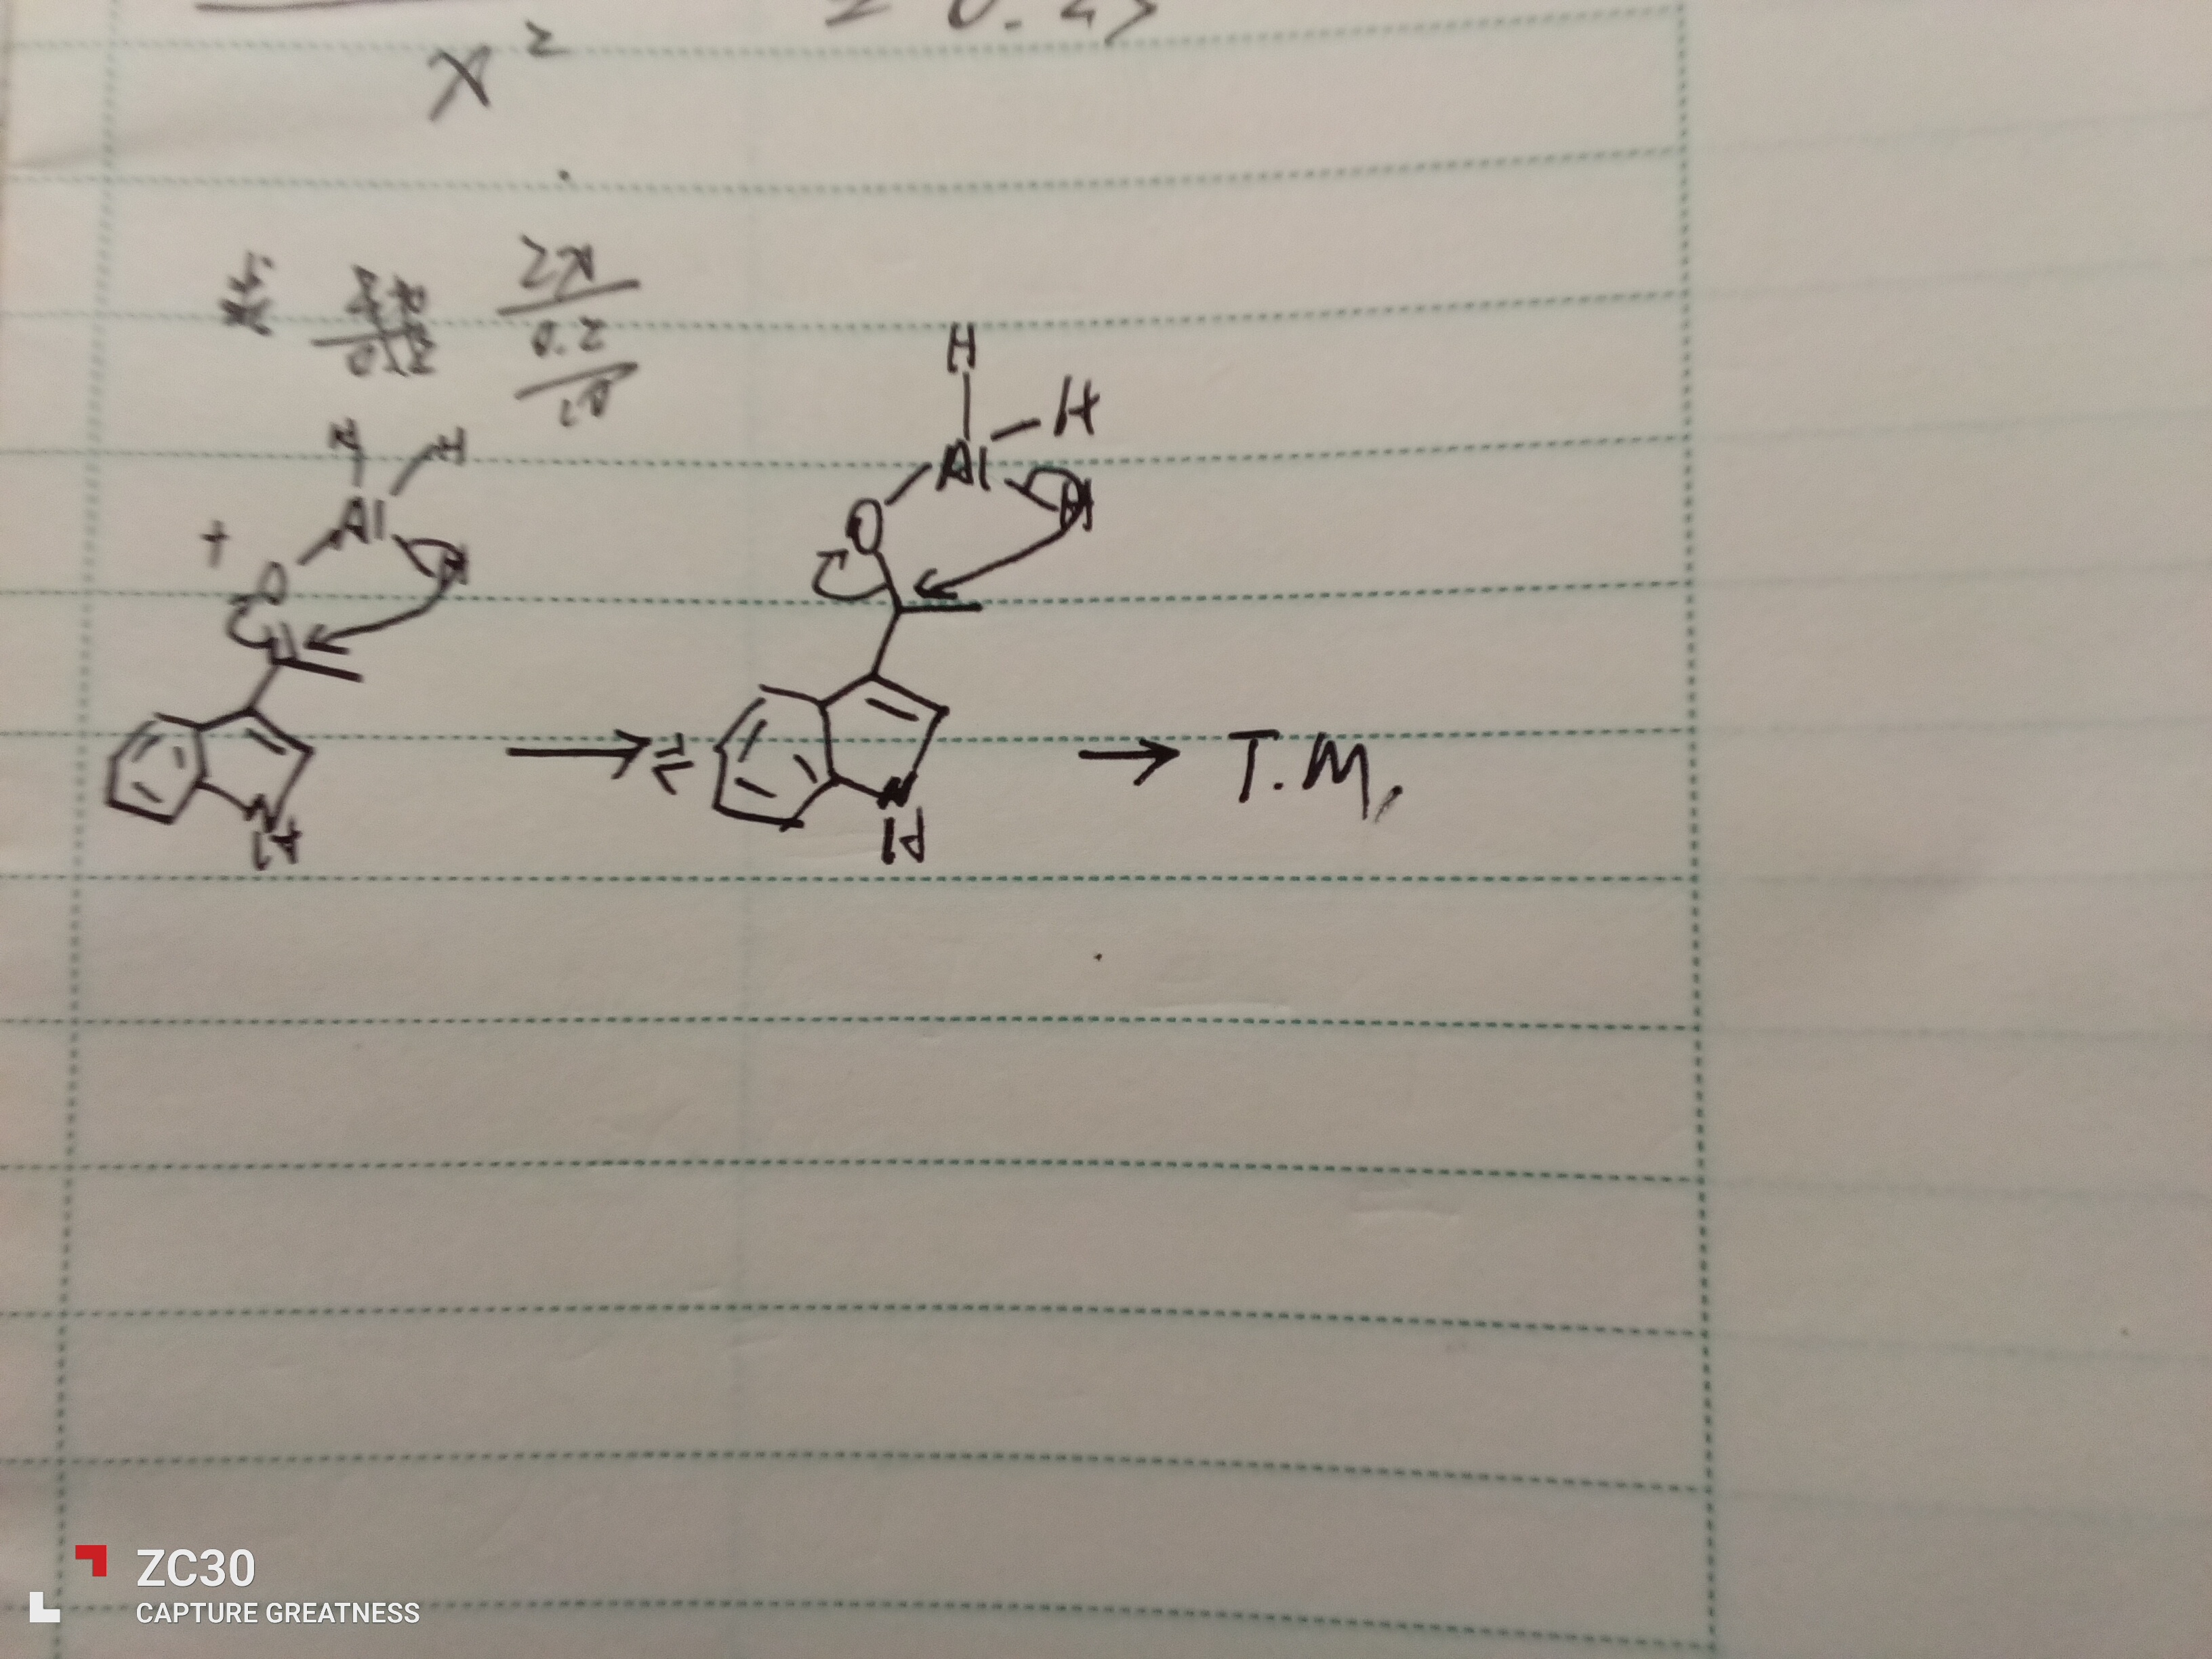 x²
= 0.25
2x
0.2
H
H
Al
H
O
H H
Al
+
O
H
N
H
N
H
→ T.M.
ZC30
CAPTURE GREATNESS